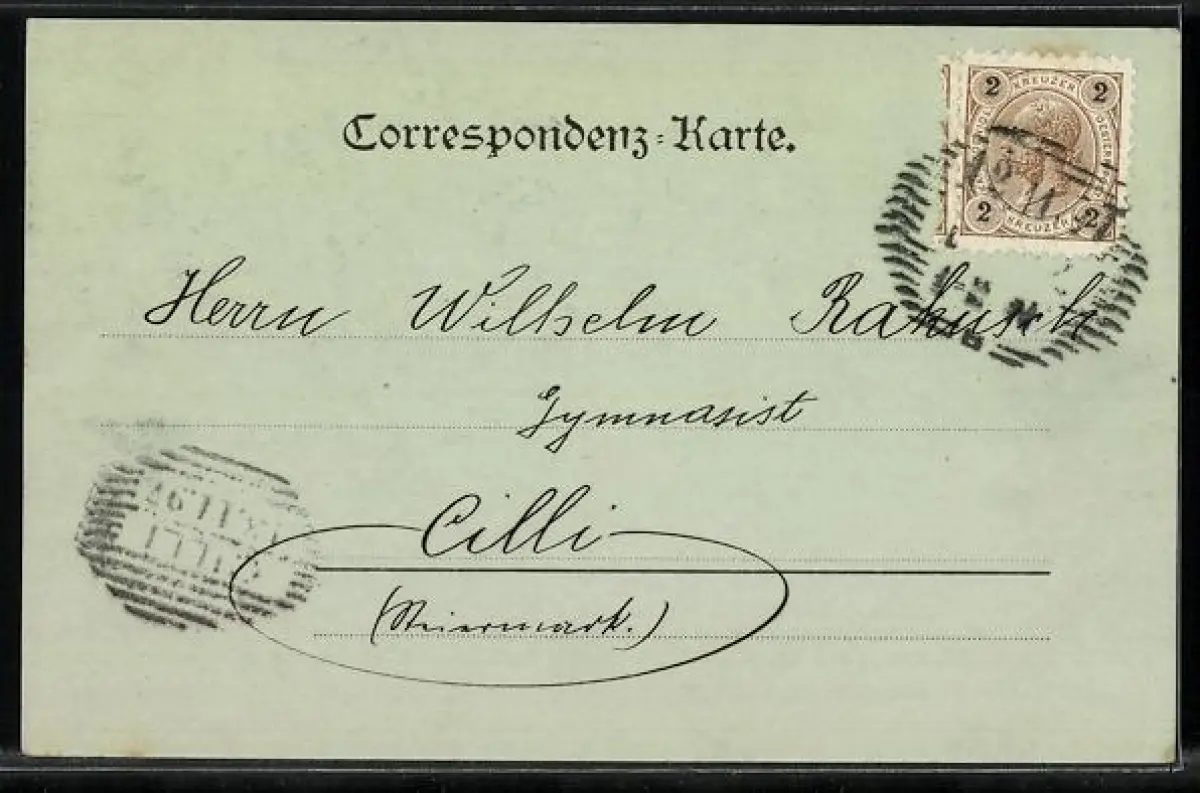 Correspondenz-Karte.
2 KREUZER 2
2 KREUZER 2
Herrn Wilhelm Rakusch
Gymnasist
Cilli
(Steiermark.)
CILLI